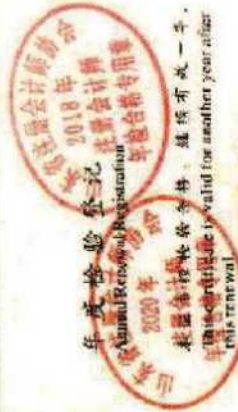 年度检验登记
Annual Renewal Registration
本证书经检验合格，继续有效一年。
This certificate is valid for another year after
this renewal.
2018年
注册会计师
年检合格专用章
2020年